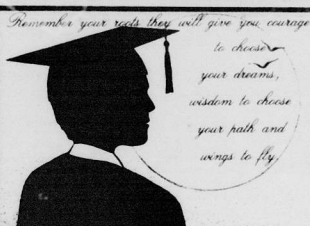 Remember your roots they will give you courage
to choose
your dreams,
wisdom to choose
your path and
wings to fly.